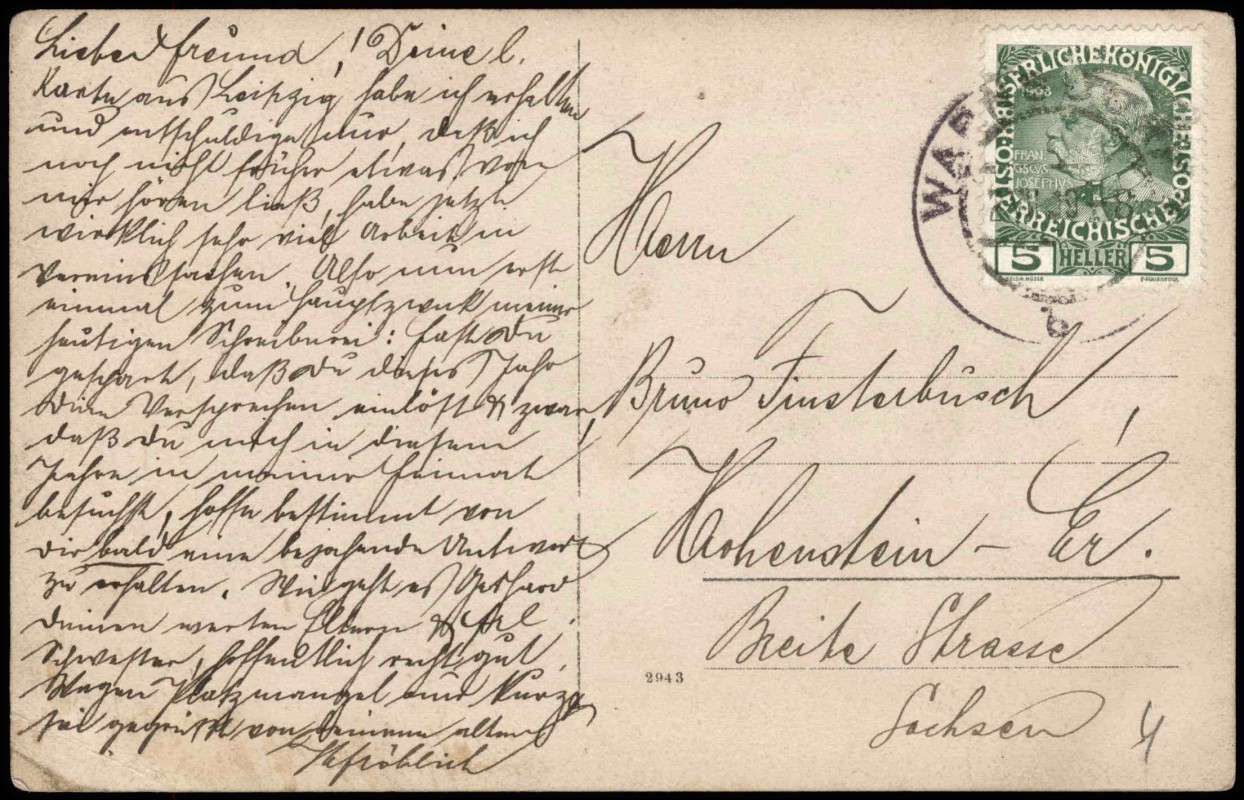 Lieber Freund! Deine l.
Karte aus Leipzig habe ich erhalten
und entschuldige nur, daß ich
noch nicht früher etwas von
mir hören ließ, habe jetzt
wirklich sehr viel Arbeit in
Vereinssachen. Also nun erst
einmal zum Hauptzweck meiner
heutigen Schreiberei: Hast Du
gespart, daß Du dieses Jahr
Dein Versprechen einlöst & zwar,
daß Du mich in diesem
Jahre in meiner Heimat
besuchst, hoffe bestimmt von
Dir bald eine bejahende Antwort
zu erhalten. Wie geht es
Deinen werten Eltern & Frl.
Schwester, hoffentlich recht gut.
Wegen Platzmangel nur kurz
sei gegrüßt von Deinem alten
Fröhlich
Herrn
Bruno Finsterbusch,
Hohenstein - Er.
Breite Strasse
Sachsen
2943
4
KAISERLICHE KÖNIGLICHE ÖSTERREICHISCHE POST
1908
FRAN
CISCVS
JOSEPHVS
5 HELLER 5
WAR
b